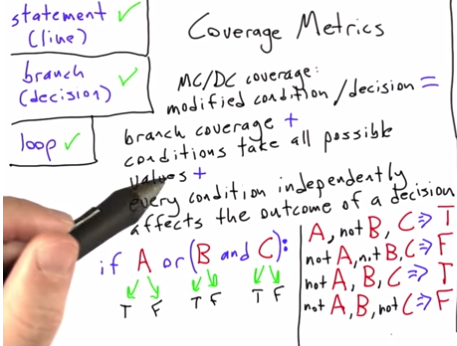 statement
(line)
Coverage Metrics
branch
(decision)
MC/DC coverage:
modified condition/decision =
loop
branch coverage +
conditions take all possible
values +
every condition independently
affects the outcome of a decision
if A or (B and C):
T F T F T F
A, not B, C ⇒ T
not A, not B, C ⇒ F
not A, B, C ⇒ T
not A, B, not C ⇒ F